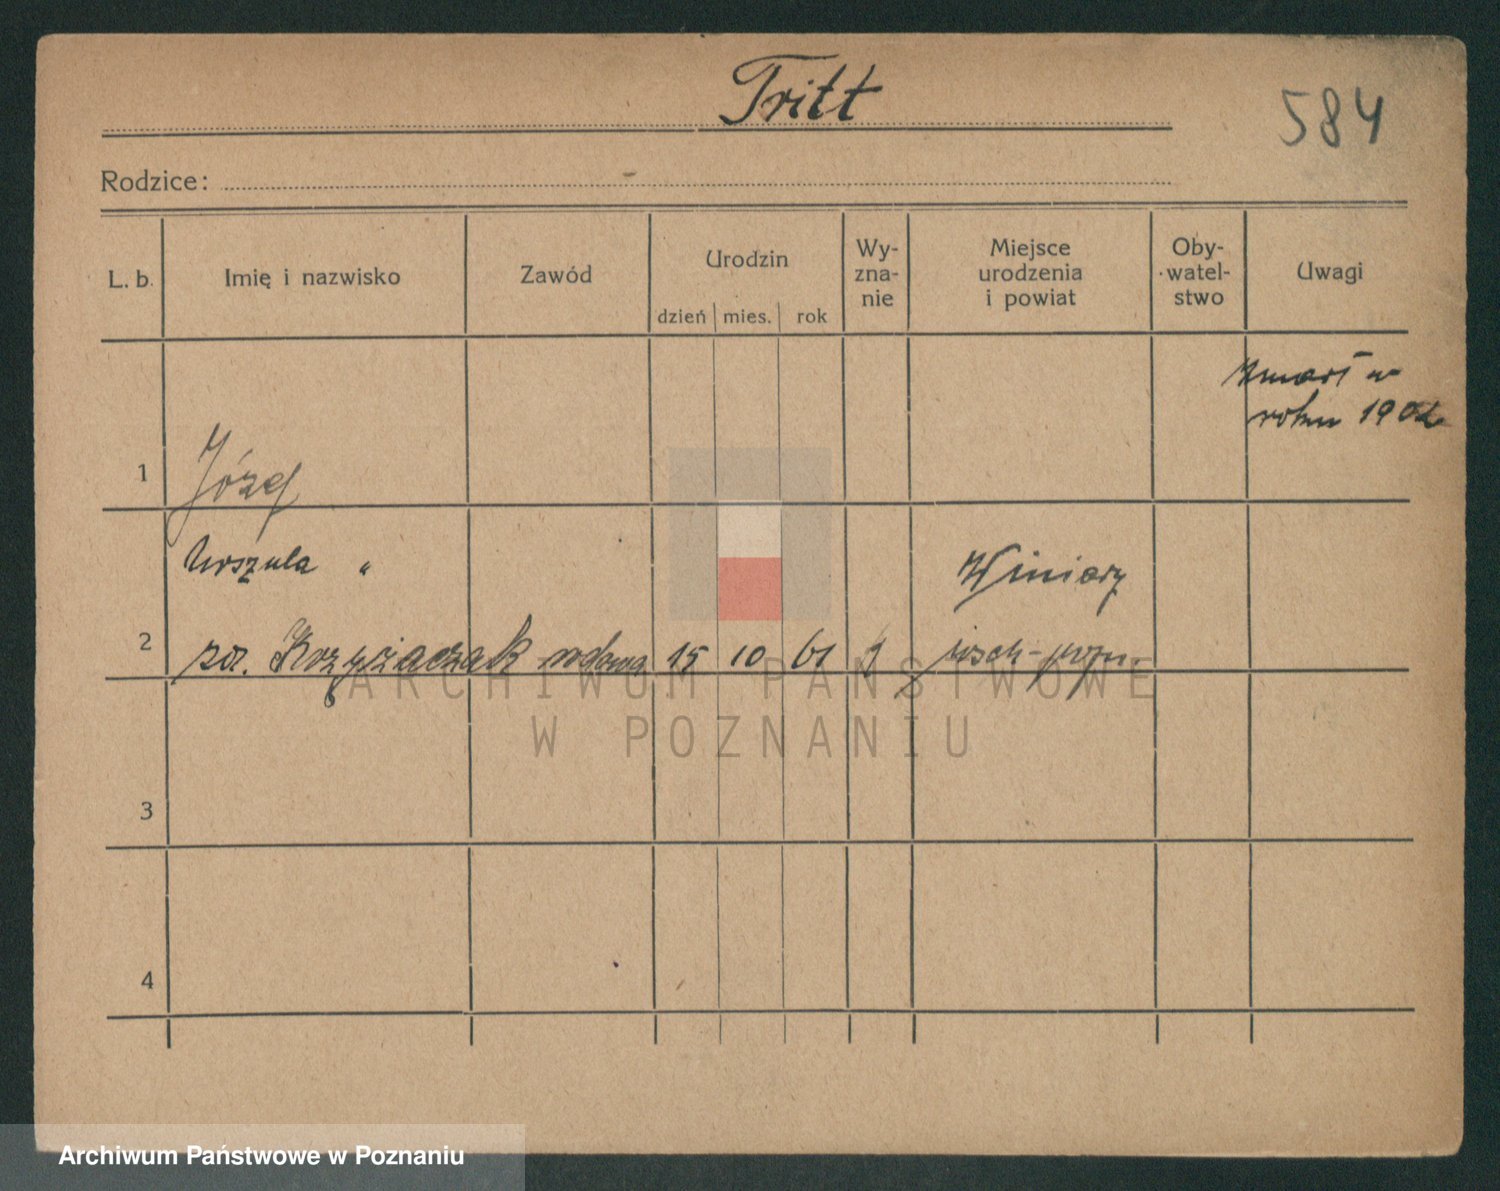 Tritt
584
Rodzice:
L. b. Imię i nazwisko Zawód Urodzin Wy-zna-nie Miejsce urodzenia i powiat Oby-watel-stwo Uwagi
dzień mies. rok
zmarł w
roku 1902
1 Józef
Urszula " Winiary
2 Krzyżaczak wdowa 15 10 61
3
4
ARCHIWUM PAŃSTWOWE
W POZNANIU
Archiwum Państwowe w Poznaniu